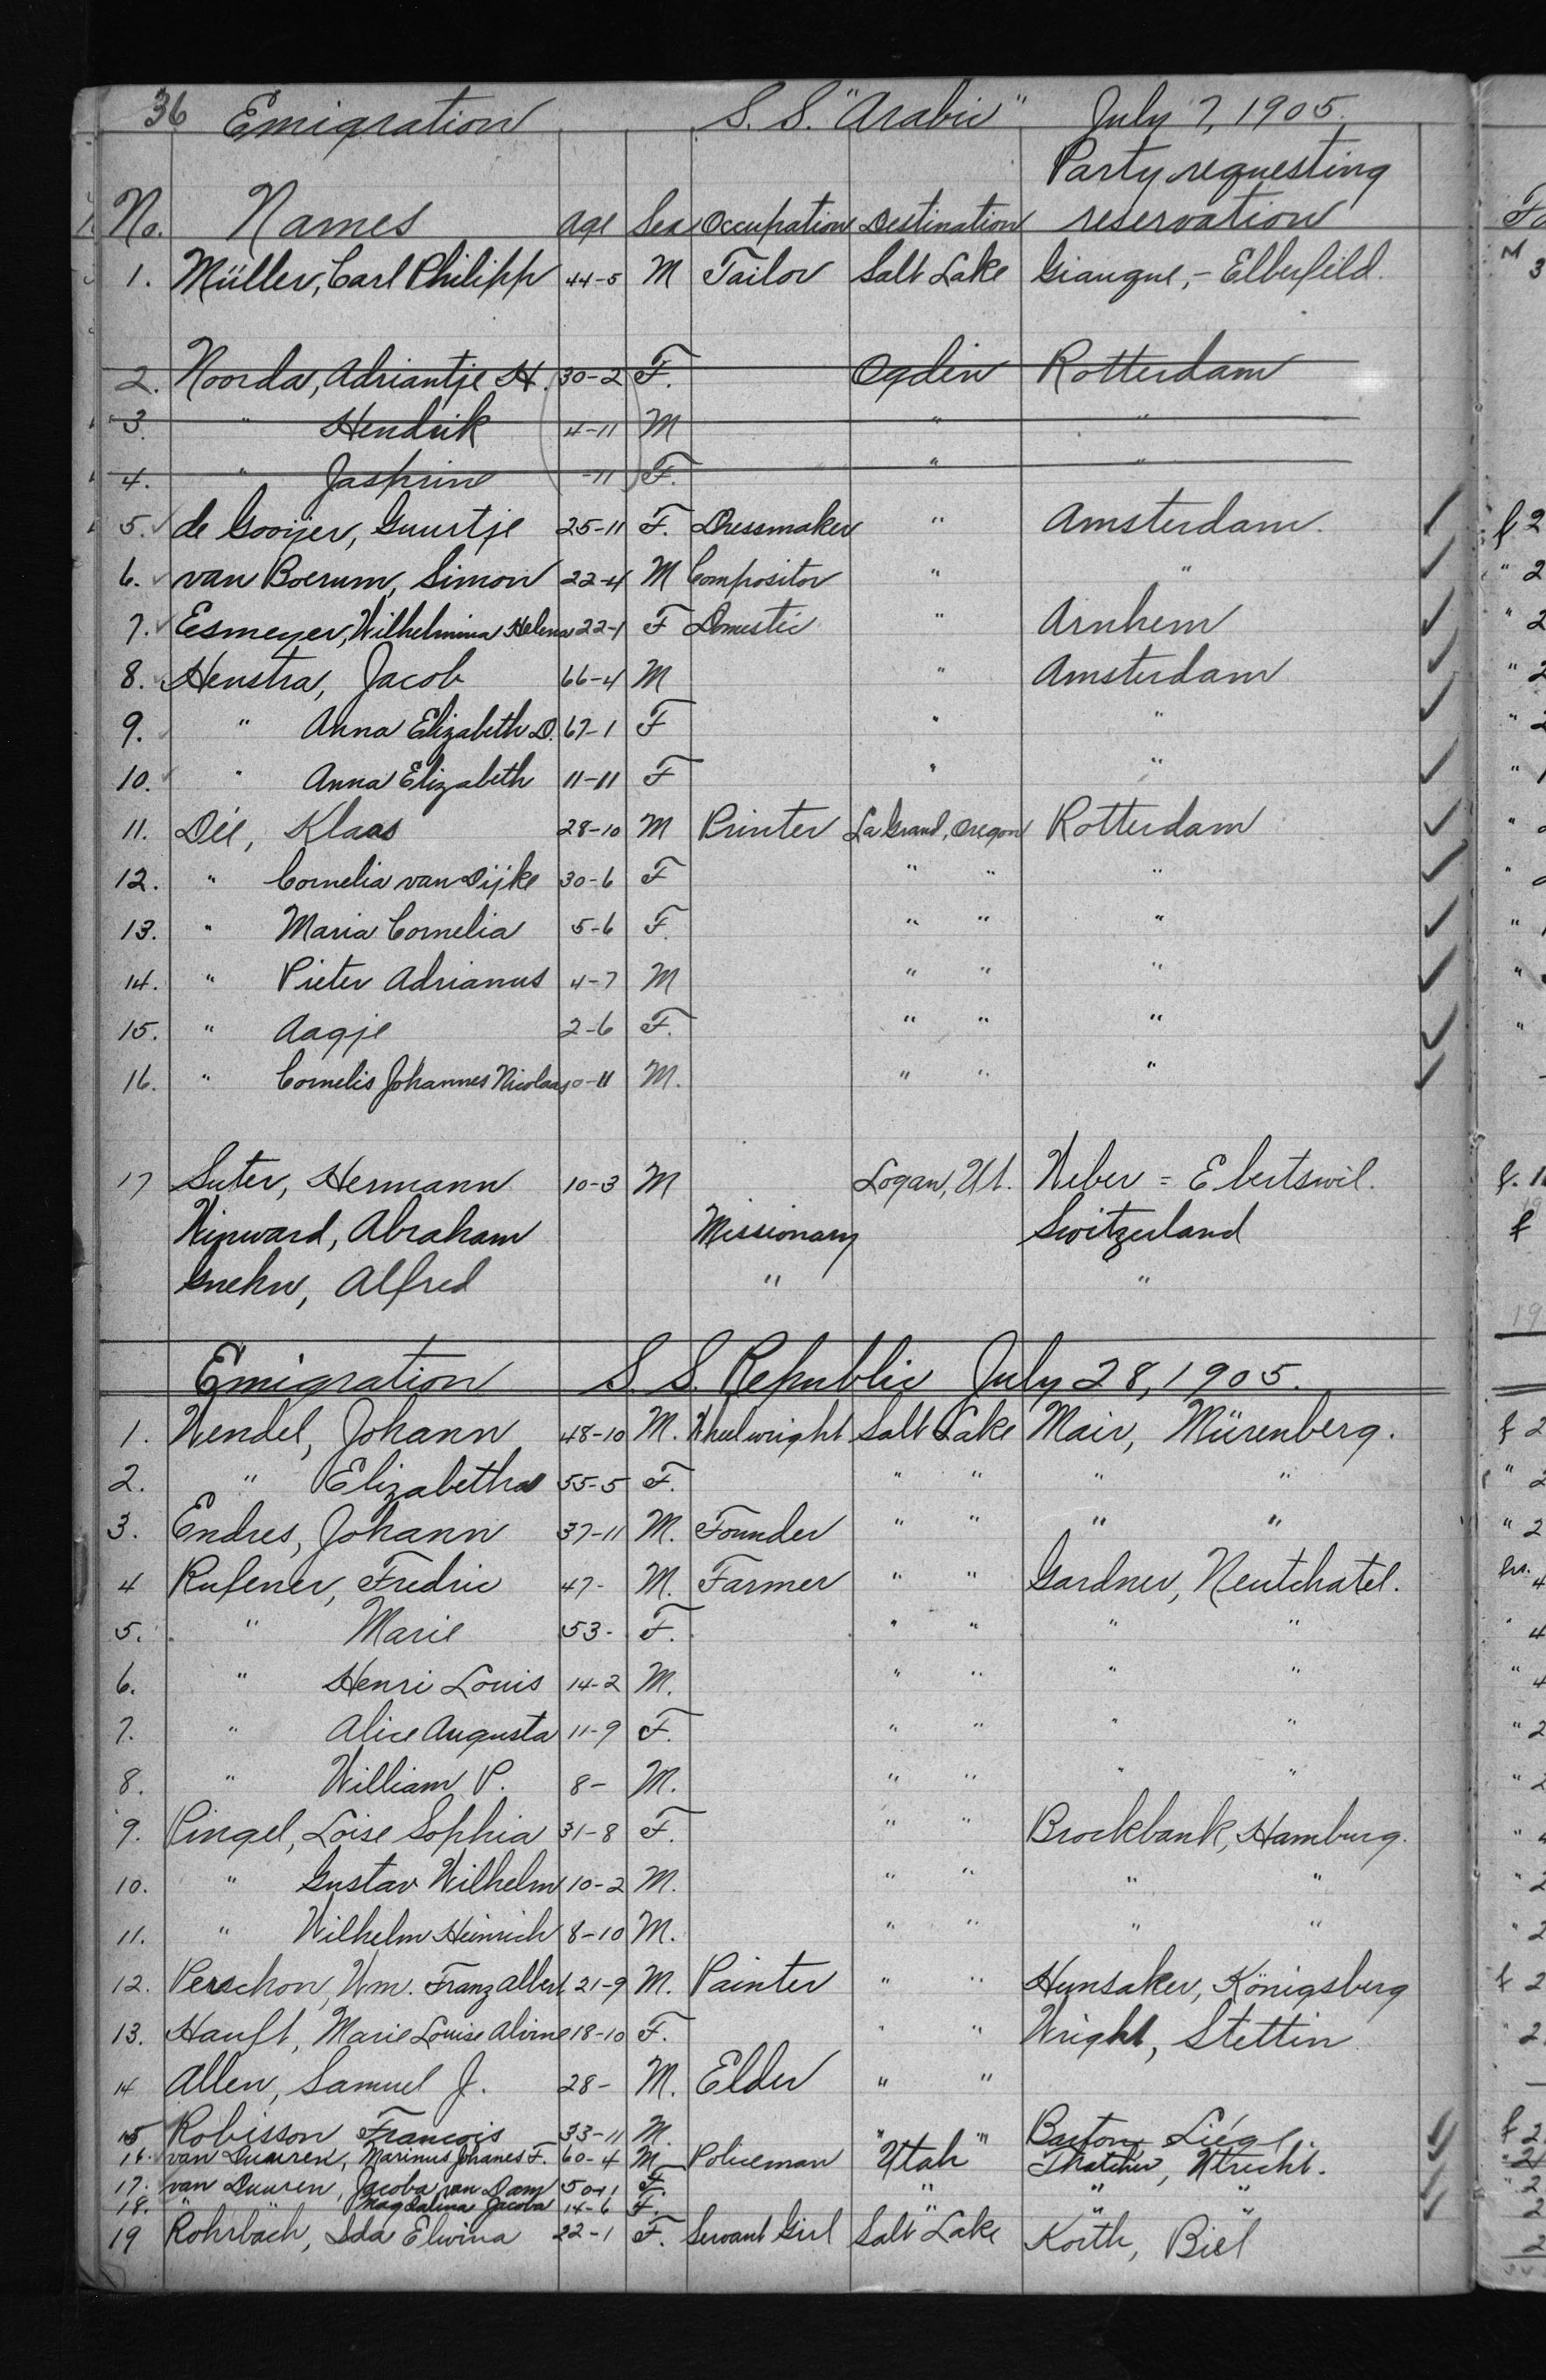 36 Emigration S. S. "Arabic" July 7, 1905.
Party requesting
No. Names Age Sex Occupation Destination reservation
1. Müller, Carl Philipp 44-5 M Tailor Salt Lake Giauque, - Elberfeld.
2. Noorda, Adriantje H. 30-2 F. Ogden Rotterdam
3. " Hendrik 4-11 M " "
4. " Jasprin -11 F. " "
5. ✓ de Gooijer, Guurtje 25-11 F. Dressmaker " Amsterdam. ✓
6. ✓ van Boerum, Simon 22-4 M Compositor " " ✓
7. ✓ Esmeyer, Wilhelmina Helena 22-1 F Domestic " Arnhem ✓
8. Henstra, Jacob 66-4 M " Amsterdam ✓
9. " Anna Elizabeth D. 67-1 F " " ✓
10. " Anna Elizabeth 11-11 F " " ✓
11. Dee, Klaas 28-10 M Printer La Grand, Oregon Rotterdam ✓
12. " Cornelia van Dijke 30-6 F " " " ✓
13. " Maria Cornelia 5-6 F. " " " ✓
14. " Pieter Adrianus 4-7 M " " " ✓
15. " Aagje 2-6 F. " " " ✓
16. " Cornelis Johannes Nicolaas 0-11 M. " " " ✓
17 Suter, Hermann 10-3 M Logan, Ut. Weber = Ebertswil.
Winward, Abraham Missionary Switzerland
Gnehm, Alfred " "
Emigration S. S. Republic July 28, 1905.
1. Wendel, Johann 48-10 M. Wheelwright Salt Lake Mair, Nürenberg.
2. " Elizabetha 55-5 F. " " " "
3. Endres, Johann 37-11 M. Founder " " " "
4 Rufener, Fredric 47- M. Farmer " " Gardner, Neutchatel.
5. " Marie 53- F. " " " "
6. " Henri Louis 14-2 M. " " " "
7. " Alice Augusta 11-9 F. " " " "
8. " William P. 8- M. " " " "
9. Pingel, Loise Sophia 31-8 F. " " Brockbank, Hamburg.
10. " Gustav Wilhelm 10-2 M. " " " "
11. " Wilhelm Heinrich 8-10 M. " " " "
12. Perschon, Wm. Franz Albert 21-9 M. Painter " " Hunsaker, Königsberg
13. Hauft, Marie Louise Alvine 18-10 F. " " Wright, Stettin
14 Allen, Samuel J. 28- M. Elder " "
15 Robisson Francois 33-11 M. " " Barton Liége. ✓
16. van Duuren, Marinus Johanes F. 60-4 M. Policeman Utah Thatcher, Utrecht. ✓
17. van Duuren, Jacoba van Dam 50-11 F. " " " ✓
18. " Magdalina Jacoba 14-6 F. " " " ✓
19 Rohrbach, Ida Elwina 22-1 F. Servant Girl Salt Lake Korth, Biel